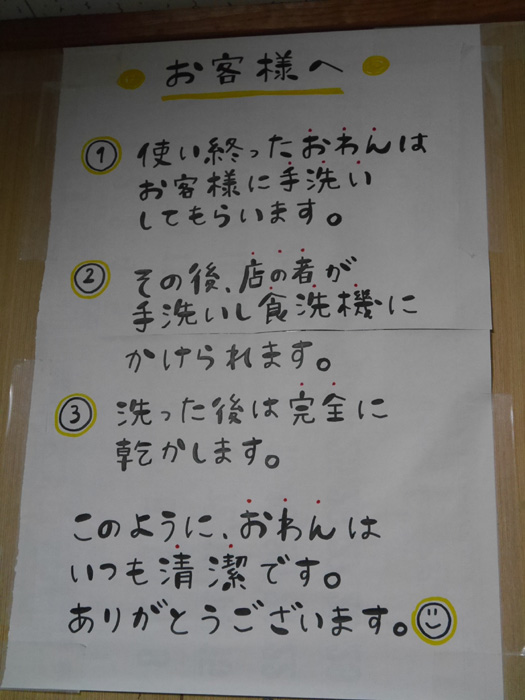 お客様へ
① 使い終ったおわんは
お客様に手洗い
してもらいます。
② その後、店の者が
手洗いし食洗機に
かけられます。
③ 洗った後は完全に
乾かします。
このように、おわんは
いつも清潔です。
ありがとうございます。